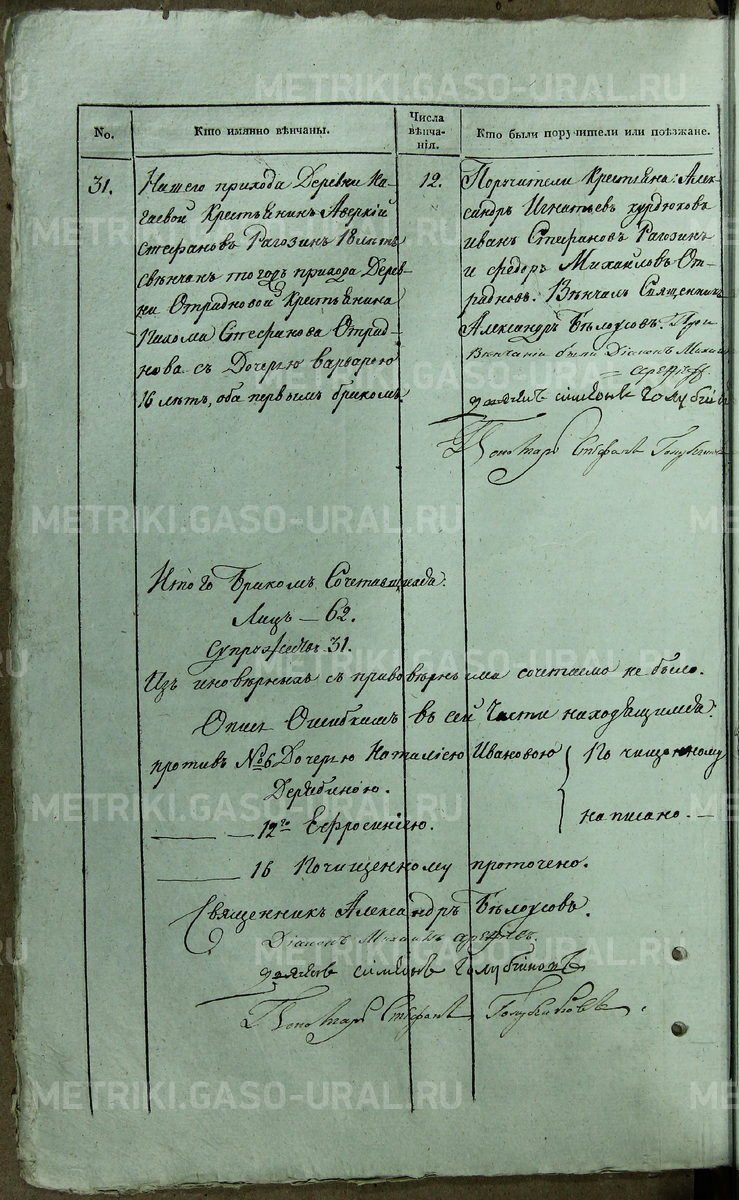 No.
Кто имянно вѣнчаны.
Числа вѣнча-нія.
Кто были поручители или поѣзжане.
31.
Нашего прихода Деревни Ка-
гаевой Крестьянинъ Аверкій
Стефановъ Рагозинъ 18 лѣтъ
свѣнчан того прихода Дерев-
ни Отрадновой Крестьянина
Пахома Стефанова Отрад-
нова съ Дочерью Варварою
16 лѣтъ, оба первымъ бракомъ.
12.
Поручители Крестьяна: Алек-
сандръ Игнатьевъ Хурдюковъ
иванъ Стефановъ Рагозинъ
и Федоръ Михайловъ От-
радновъ. Вѣнчалъ Священникъ
Александръ Бѣлоусовъ. При
Вѣнчаніи были Діаконъ Миха
дьячекъ симеонъ голубйн
Пономарь Стефанъ Голубин
Итого Бракомъ Сочетавшихся:
Лицъ — 62.
Супружествъ 31.
Изъ иновѣрныхъ съ правовѣрными сочетаемо не было.
Опись Ошибкамъ въ сей Части находящимся:
противъ №6 Дочерью Наталіею Ивановою
Дерябиною.
По чищенному
написано. —
— 12го Ефросиніею.
— 16 Почищенному проточено.
Священникъ Александръ Бѣлоусовъ.
Діаконъ Михаилъ
дьячекъ симеонъ голубйновъ
Пономарь Стефанъ Голубиновъ.
METRIKI.GASO-URAL.RU